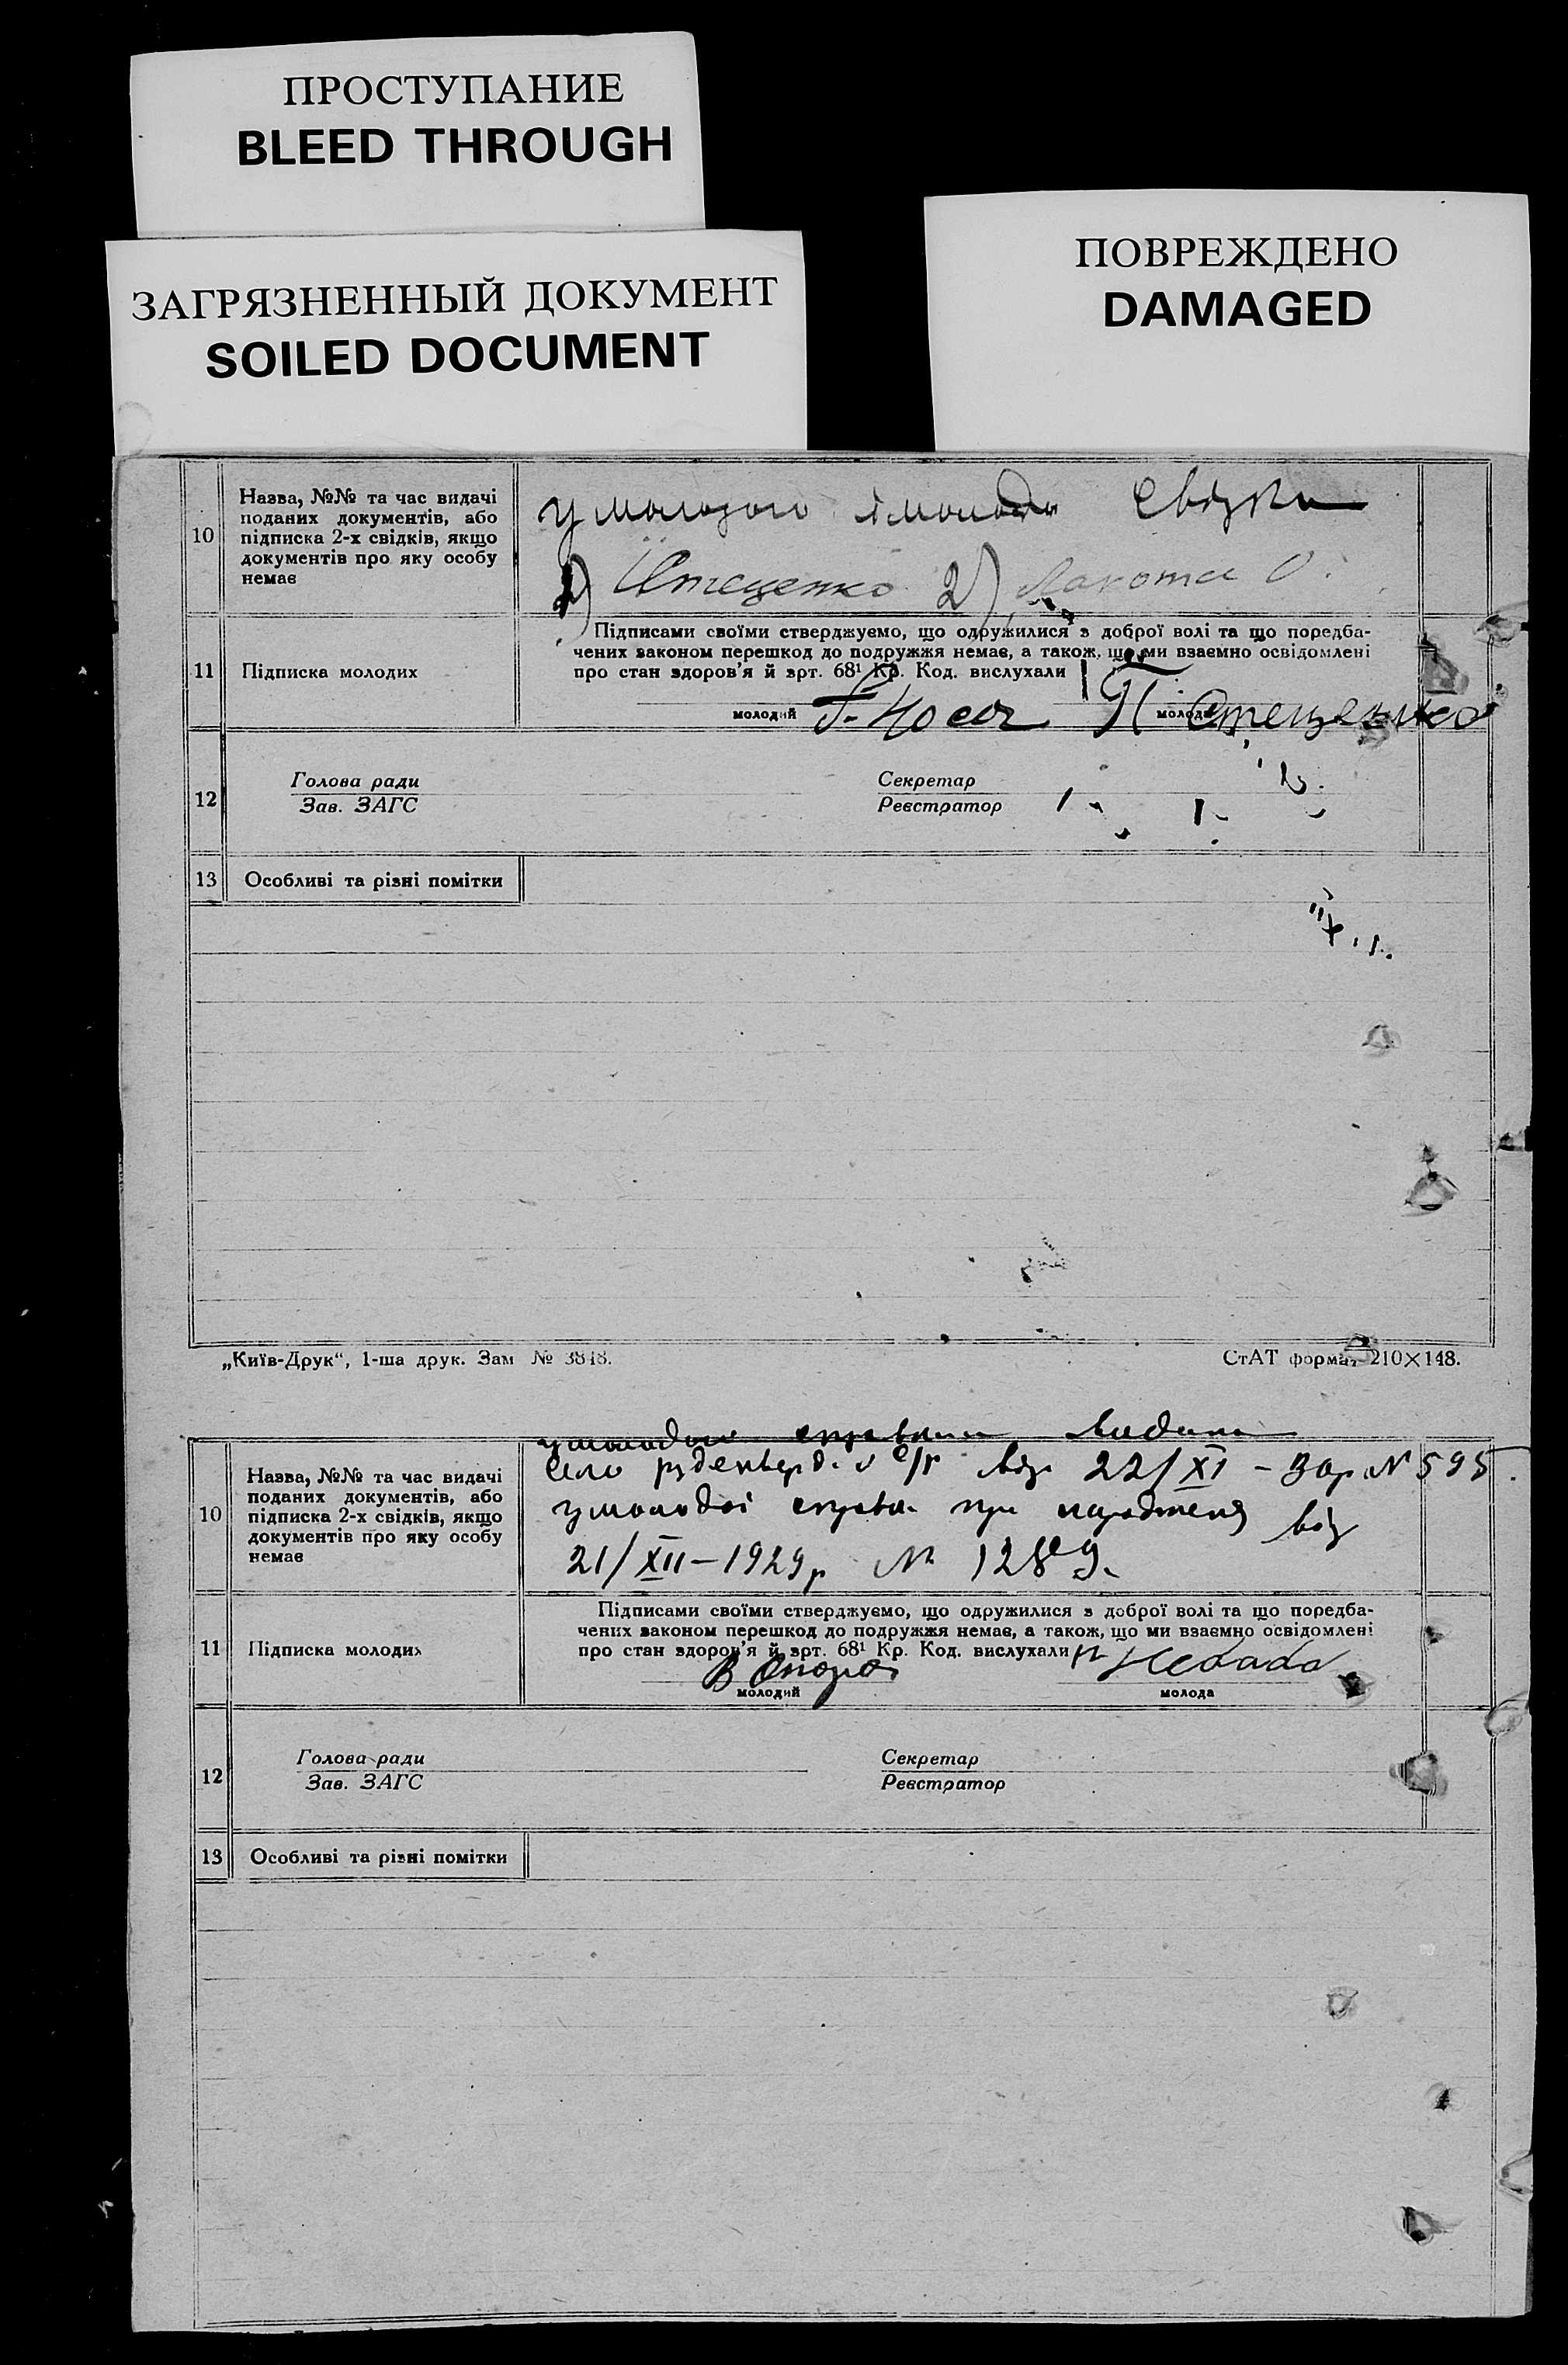 ПРОСТУПАНИЕ
BLEED THROUGH
ЗАГРЯЗНЕННЫЙ ДОКУМЕНТ
SOILED DOCUMENT
ПОВРЕЖДЕНО
DAMAGED
10
Назва, №№ та час видачі
поданих документів, або
підписка 2-х свідків, якщо
документів про яку особу
немає
у молодого і молодої Свідки
1) Стеценко 2) Лакота О.
11
Підписка молодих
Підписами своїми стверджуємо, що одружилися з доброї волі та що поредба-
чених законом перешкод до подружжя немає, а також, що ми взаємно освідомлені
про стан здоров'я й арт. 68¹ Кр. Код. вислухали
Носач П Стеценко
молодий молода
12
Голова ради
Зав. ЗАГС
Секретар
Реєстратор
13
Особливі та різні помітки
„Київ-Друк“, 1-ша друк. Зам № 3848.
СтАТ формат 210×148.
10
Назва, №№ та час видачі
поданих документів, або
підписка 2-х свідків, якщо
документів про яку особу
немає
у молодого справка видана
с/р від 22/XI - За № 595
у молодої справка про народження від
21/XII-1929р № 1289.
11
Підписка молодих
Підписами своїми стверджуємо, що одружилися з доброї волі та що поредба-
чених законом перешкод до подружжя немає, а також, що ми взаємно освідомлені
про стан здоров'я й арт. 68¹ Кр. Код. вислухали
В
молодий
молода
12
Голова ради
Зав. ЗАГС
Секретар
Реєстратор
13
Особливі та різні помітки